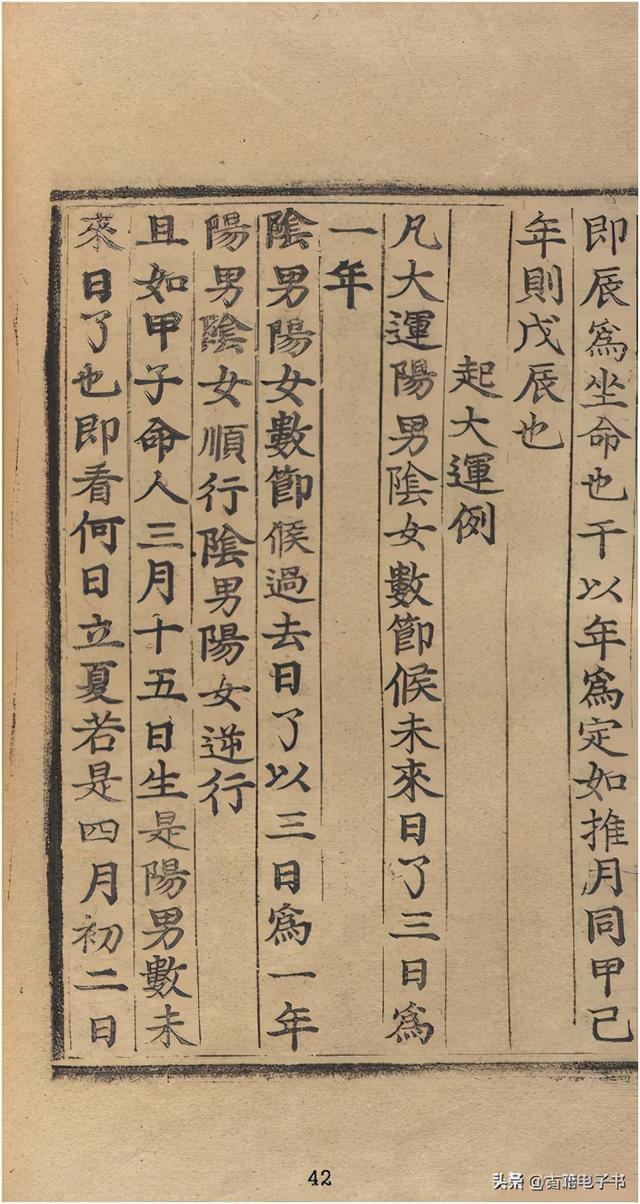 即辰爲坐命也干以年爲定如推月同甲己
年則戊辰也
起大運例
凡大運陽男陰女數節候未來日了三日爲
一年
陰男陽女數節候過去日了以三日爲一年
陽男陰女順行陰男陽女逆行
且如甲子命人三月十五日生是陽男數未
來日了也即看何日立夏若是四月初二日
42
头条 @有雅电子书